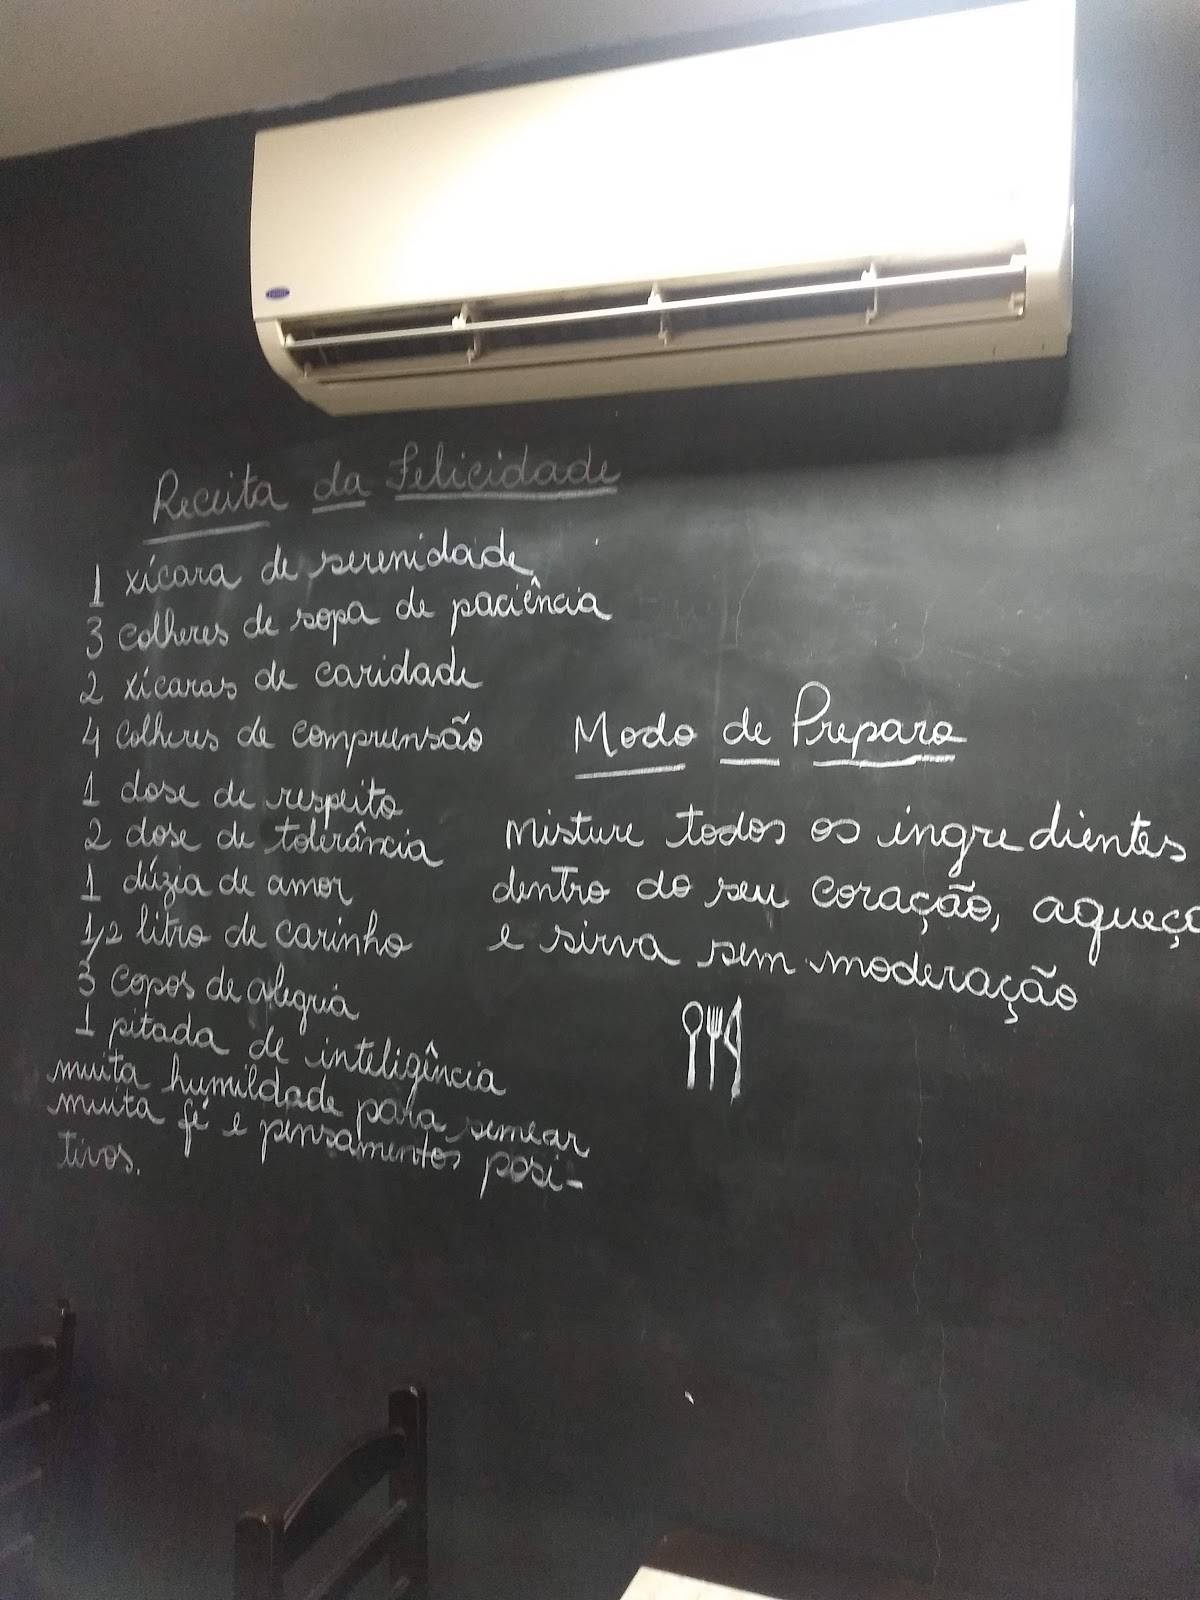 Receita da Felicidade
1 xícara de serenidade
3 colheres de sopa de paciência
2 xícaras de caridade
4 colheres de compreensão
1 dose de respeito
2 dose de tolerância
1 dúzia de amor
1/2 litro de carinho
3 copos de alegria
1 pitada de inteligência
muita humildade para semear
muita fé e pensamentos posi-
tivos.
Modo de Preparo
Misture todos os ingredientes
dentro do seu coração, aqueça
e sirva sem moderação